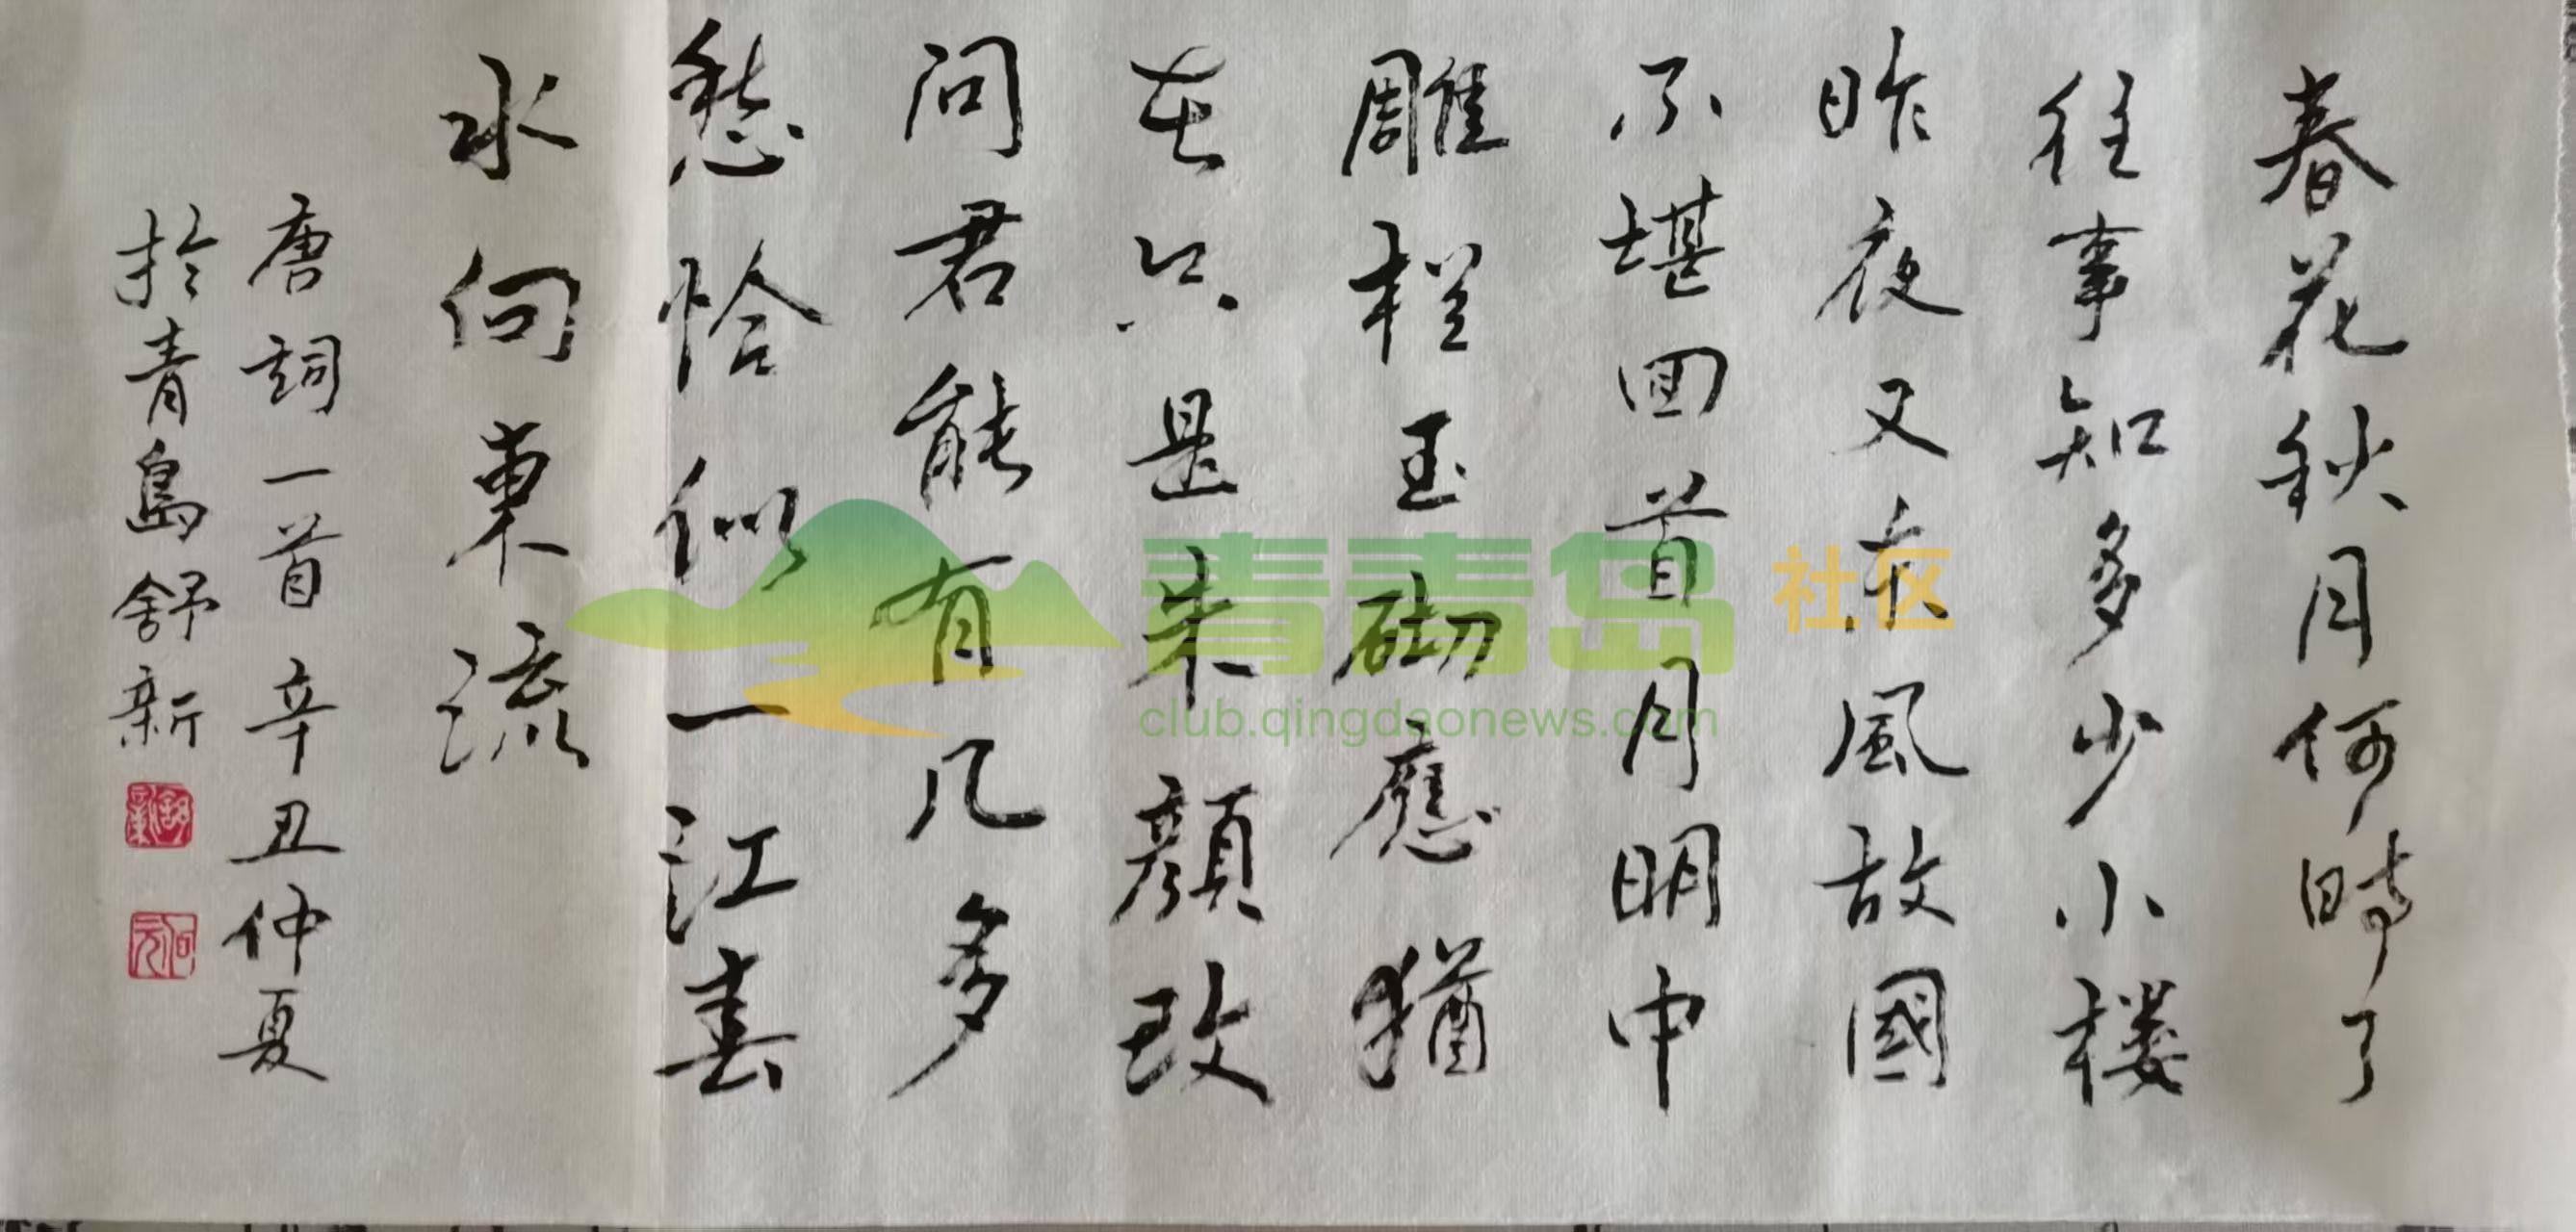 春花秋月何時了
往事知多少小楼
昨夜又东風故國
不堪回首月明中
雕栏玉砌應猶
在只是朱顔改
问君能有几多
愁恰似一江春
水向東流
唐詞一首辛丑仲夏
於青島舒新
青青岛社区
club.qingdaonews.com